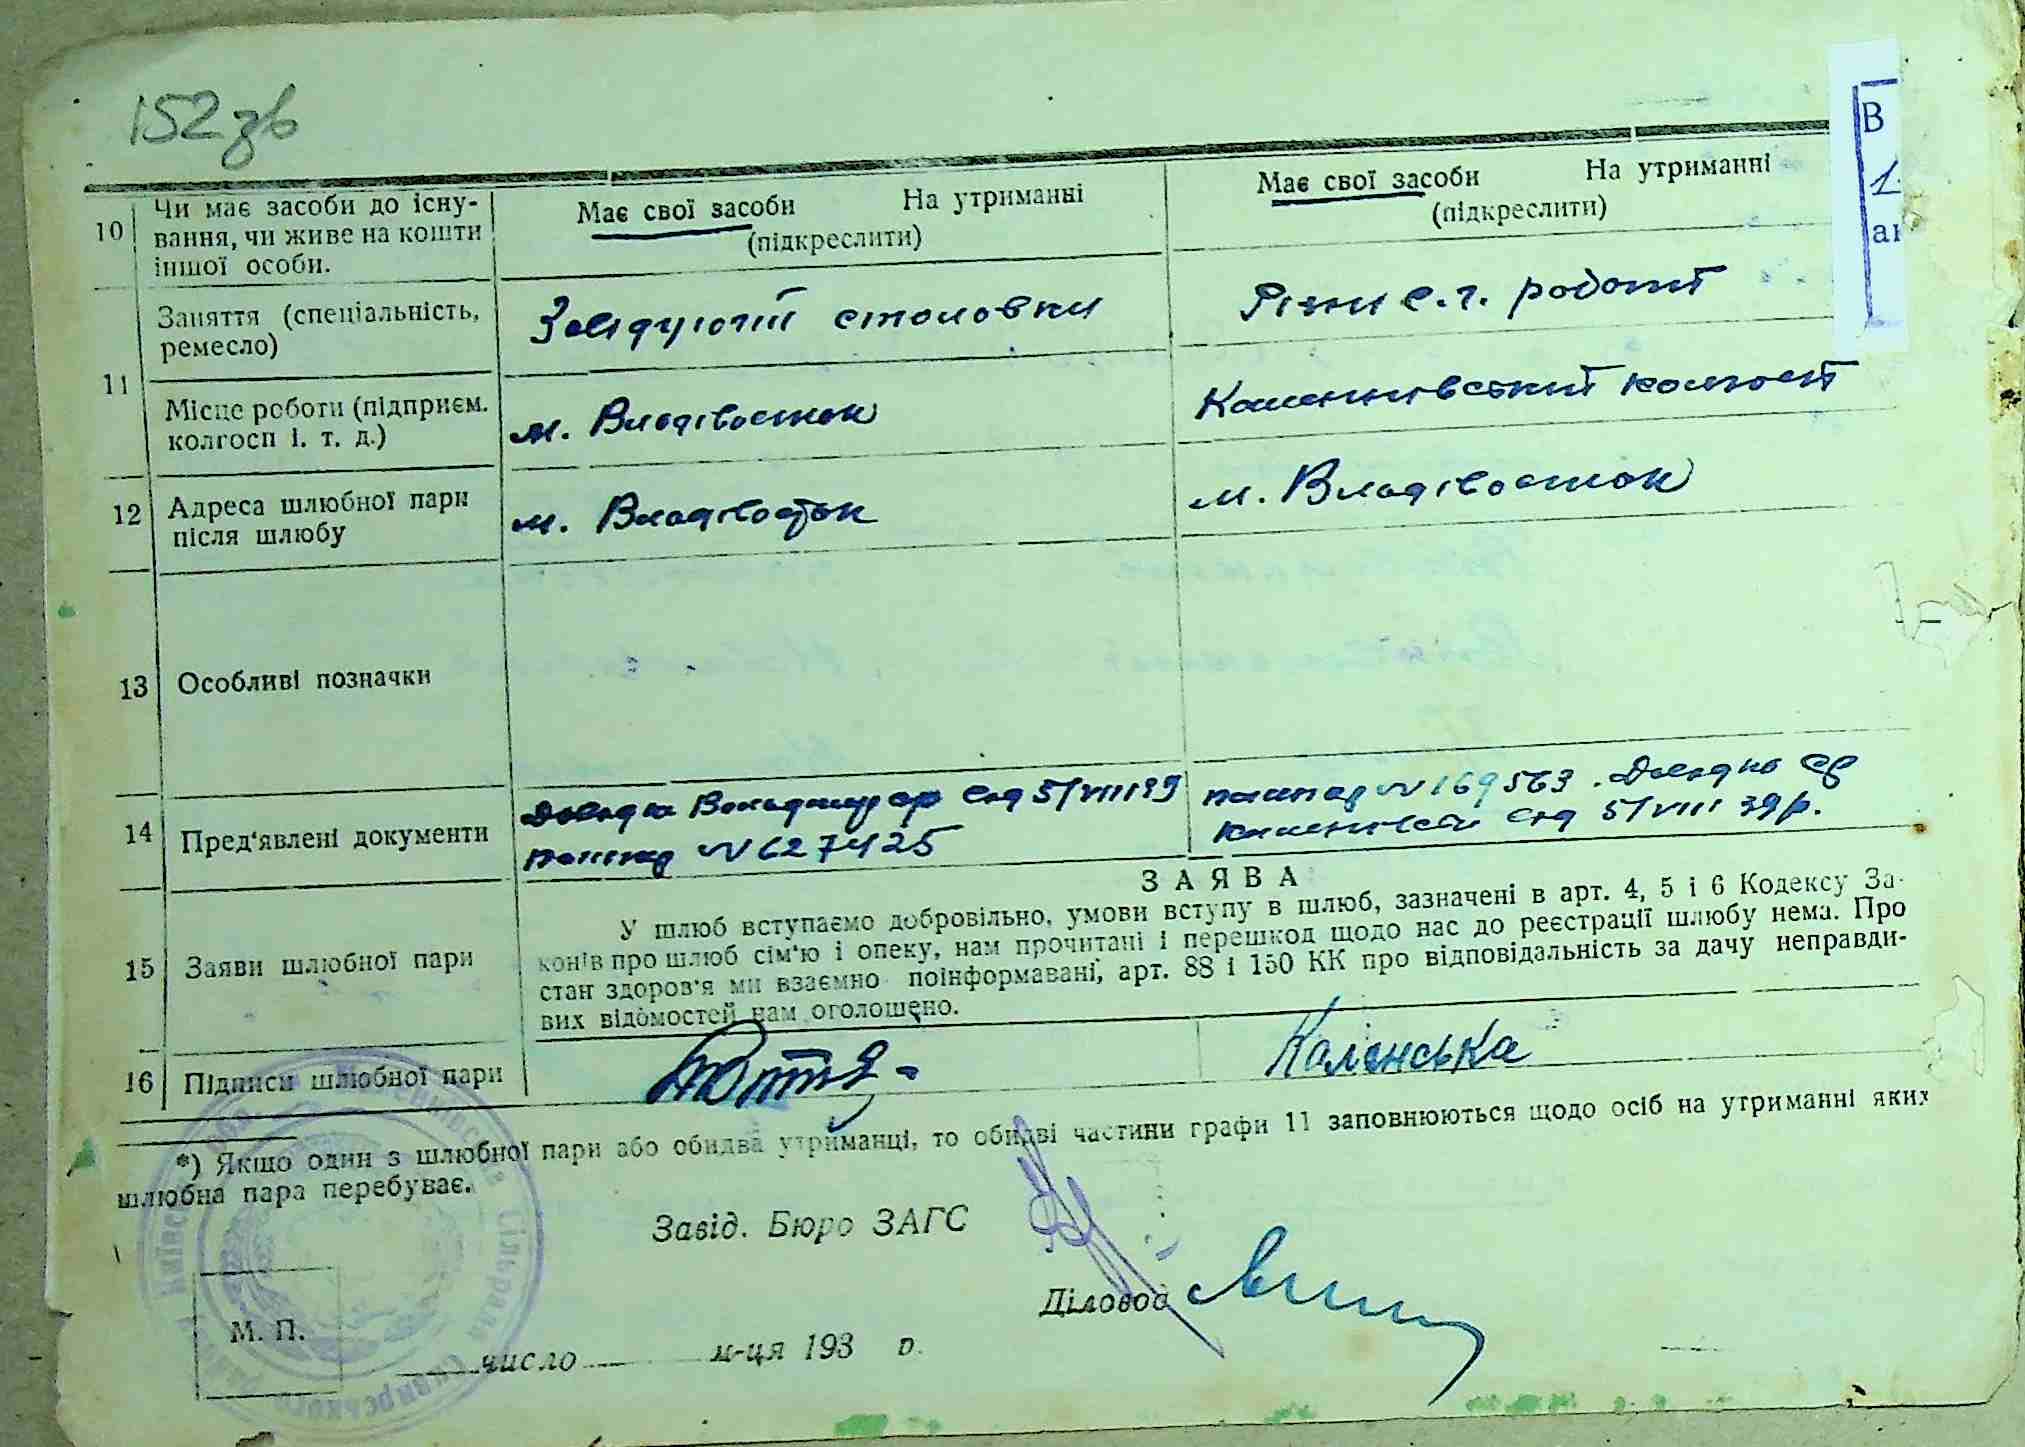 152 зв
В
1
10 Чи має засоби до існу-
вання, чи живе на кошти
іншої особи.
Має свої засоби На утриманні
(підкреслити)
Має свої засоби На утриманні
(підкреслити)
11 Заняття (спеціальність,
ремесло)
Завідуючий столовки
Різни с.г. робот
Місце роботи (підприєм.
колгосп і. т. д.)
м. Владівосток
колгосп
12 Адреса шлюбної пари
після шлюбу
м. Владівосток
м. Владівосток
13 Особливі позначки
14 Пред'явлені документи
Довідка від 5/VIII 39
паспорд № 627425
паспорд № 169563. Довідка ср
від 5/VIII 39 р.
15 Заяви шлюбної пари
ЗАЯВА
У шлюб вступаємо добровільно, умови вступу в шлюб, зазначені в арт. 4, 5 і 6 Кодексу За-
конів про шлюб сім'ю і опеку, нам прочитані і перешкод щодо нас до реєстрації шлюбу нема. Про
стан здоров'я ми взаємно поінформавані, арт. 88 і 150 КК про відповідальність за дачу неправди-
вих відомостей нам оголошено.
16 Підписи шлюбної пари
Каленська
*) Якщо один з шлюбної пари або обидва утриманці, то обидві частини графи 11 заповнюються щодо осіб на утриманні яких
шлюбна пара перебуває.
Завід. Бюро ЗАГС
Діловод
М. П.
число м-ця 193 р.
Сільрада Сквирського